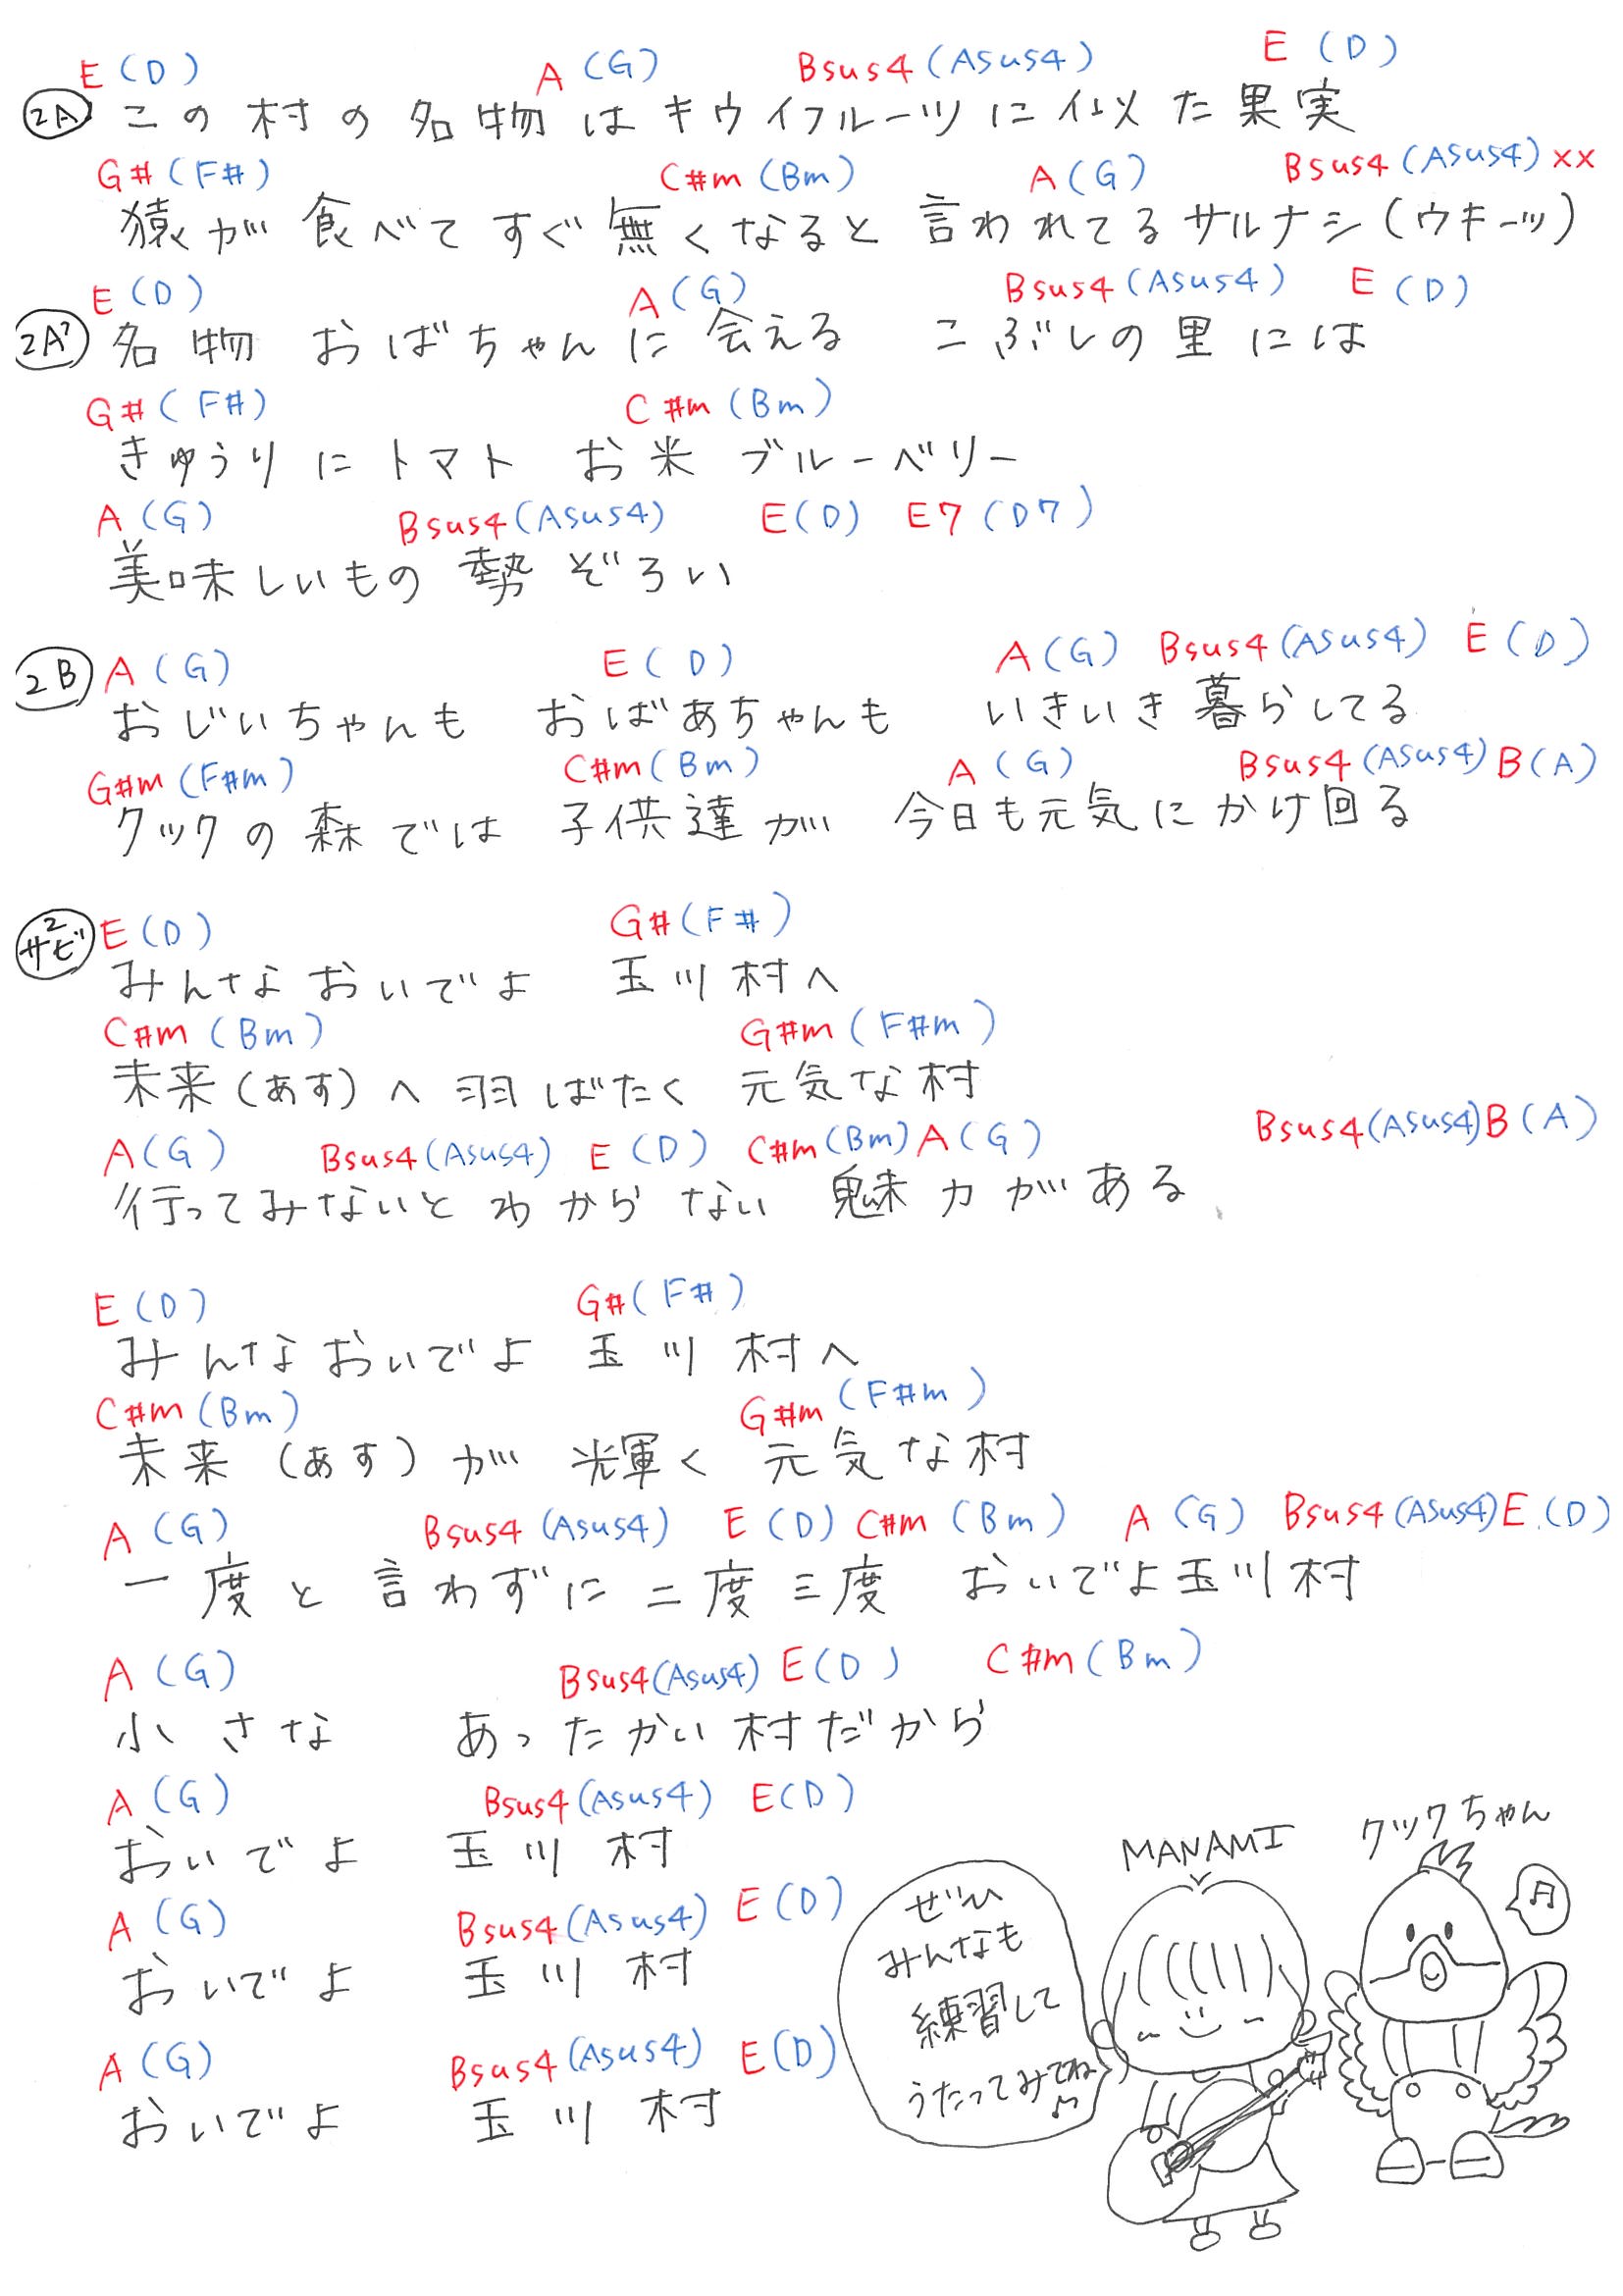 E(D) A(G) Bsus4(Asus4) E(D)
2A この村の名物はキウイフルーツに似た果実
G#(F#) C#m(Bm) A(G) Bsus4(Asus4)××
猿が食べてすぐ無くなると言われてるサルナシ(ウキーッ)
E(D) A(G) Bsus4(Asus4) E(D)
2A' 名物おばちゃんに会える こぶしの里には
G#(F#) C#m(Bm)
きゅうりにトマト お米 ブルーベリー
A(G) Bsus4(Asus4) E(D) E7(D7)
美味しいもの勢ぞろい
2B A(G) E(D) A(G) Bsus4(Asus4) E(D)
おじいちゃんも おばあちゃんも いきいき暮らしてる
G#m(F#m) C#m(Bm) A(G) Bsus4(Asus4) B(A)
クックの森では 子供達が 今日も元気にかけ回る
2サビ E(D) G#(F#)
みんなおいでよ 玉川村へ
C#m(Bm) G#m(F#m)
未来(あす)へ羽ばたく 元気な村
A(G) Bsus4(Asus4) E(D) C#m(Bm) A(G) Bsus4(Asus4) B(A)
行ってみないとわからない 魅力がある
E(D) G#(F#)
みんなおいでよ 玉川村へ
C#m(Bm) G#m(F#m)
未来(あす)が輝く 元気な村
A(G) Bsus4(Asus4) E(D) C#m(Bm) A(G) Bsus4(Asus4) E(D)
一度と言わずに二度三度 おいでよ玉川村
A(G) Bsus4(Asus4) E(D) C#m(Bm)
小さな あったかい村だから
A(G) Bsus4(Asus4) E(D)
おいでよ 玉川村
A(G) Bsus4(Asus4) E(D)
おいでよ 玉川村
A(G) Bsus4(Asus4) E(D)
おいでよ 玉川村
ぜひ
みんなも
練習して
うたってみてね♫
MANAMI
クックちゃん
♫